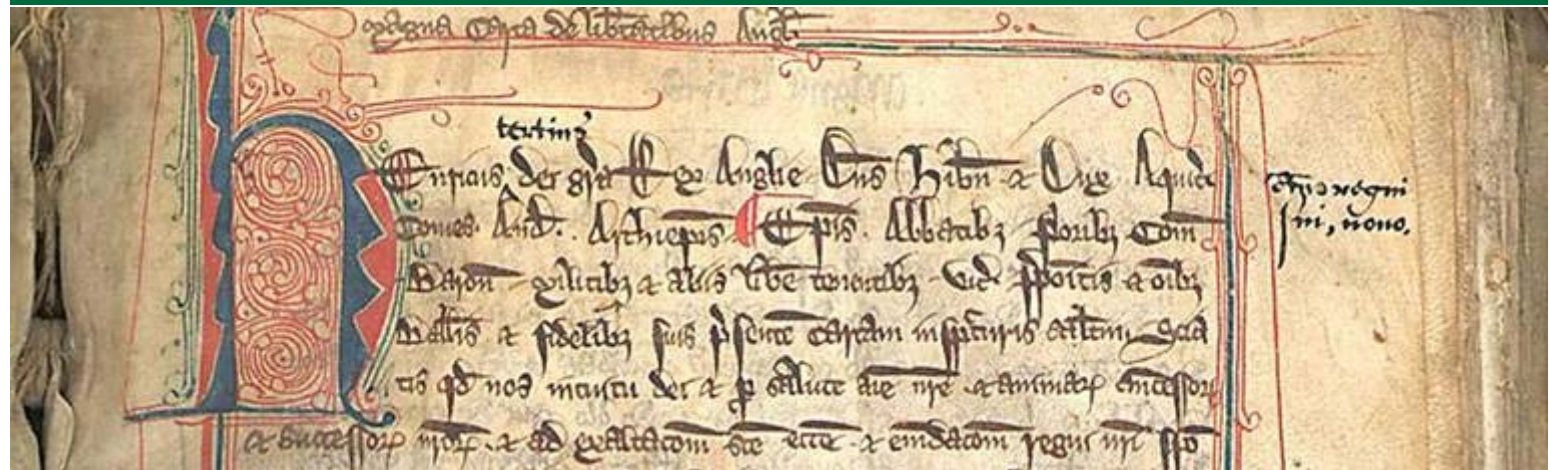 Magna Carta de lib̄tatibus Angl̄
tertius
HEnricus dei gr̄a Rex Anglie Dn̄s Hib̄n ⁊ Dux Aquit̄
Comes And̄. Archiep̄is Ep̄is. Abbatibꝫ Prioribꝫ Com̄
Baron̄ Militibꝫ ⁊ aliis lib̄e tenentibꝫ Vic̄ p̄poitis ⁊ oibꝫ
Ball̄is ⁊ fidelibꝫ suis p̄sente cartam insp̄cturis salt̄m Scia
tis qd̄ nos intuitu dei ⁊ ꝓ salute aīe nr̄e ⁊ animaꝝ ancessoꝝ
⁊ successoꝝ nr̄oꝝ ⁊ ad exaltacōm sc̄e ecc̄e ⁊ emdacōm regni nr̄i spō
anno regni
sui, nono.